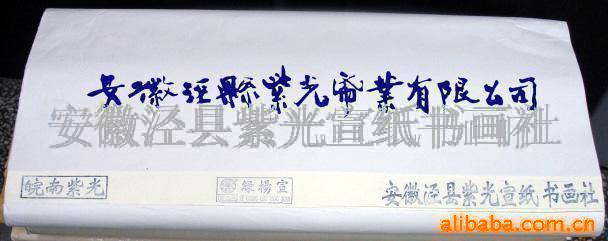 安徽泾縣紫光業有限公司
安徽泾县紫光宣纸书画社
皖南紫光
綠楊宣
安徽泾县紫光宣纸书画社
alibaba.com.cn